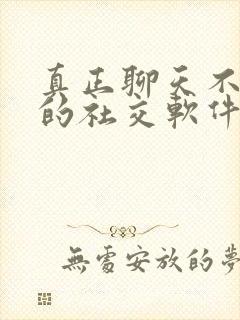 真正聊天不
的社交軟件
無處安放的夢